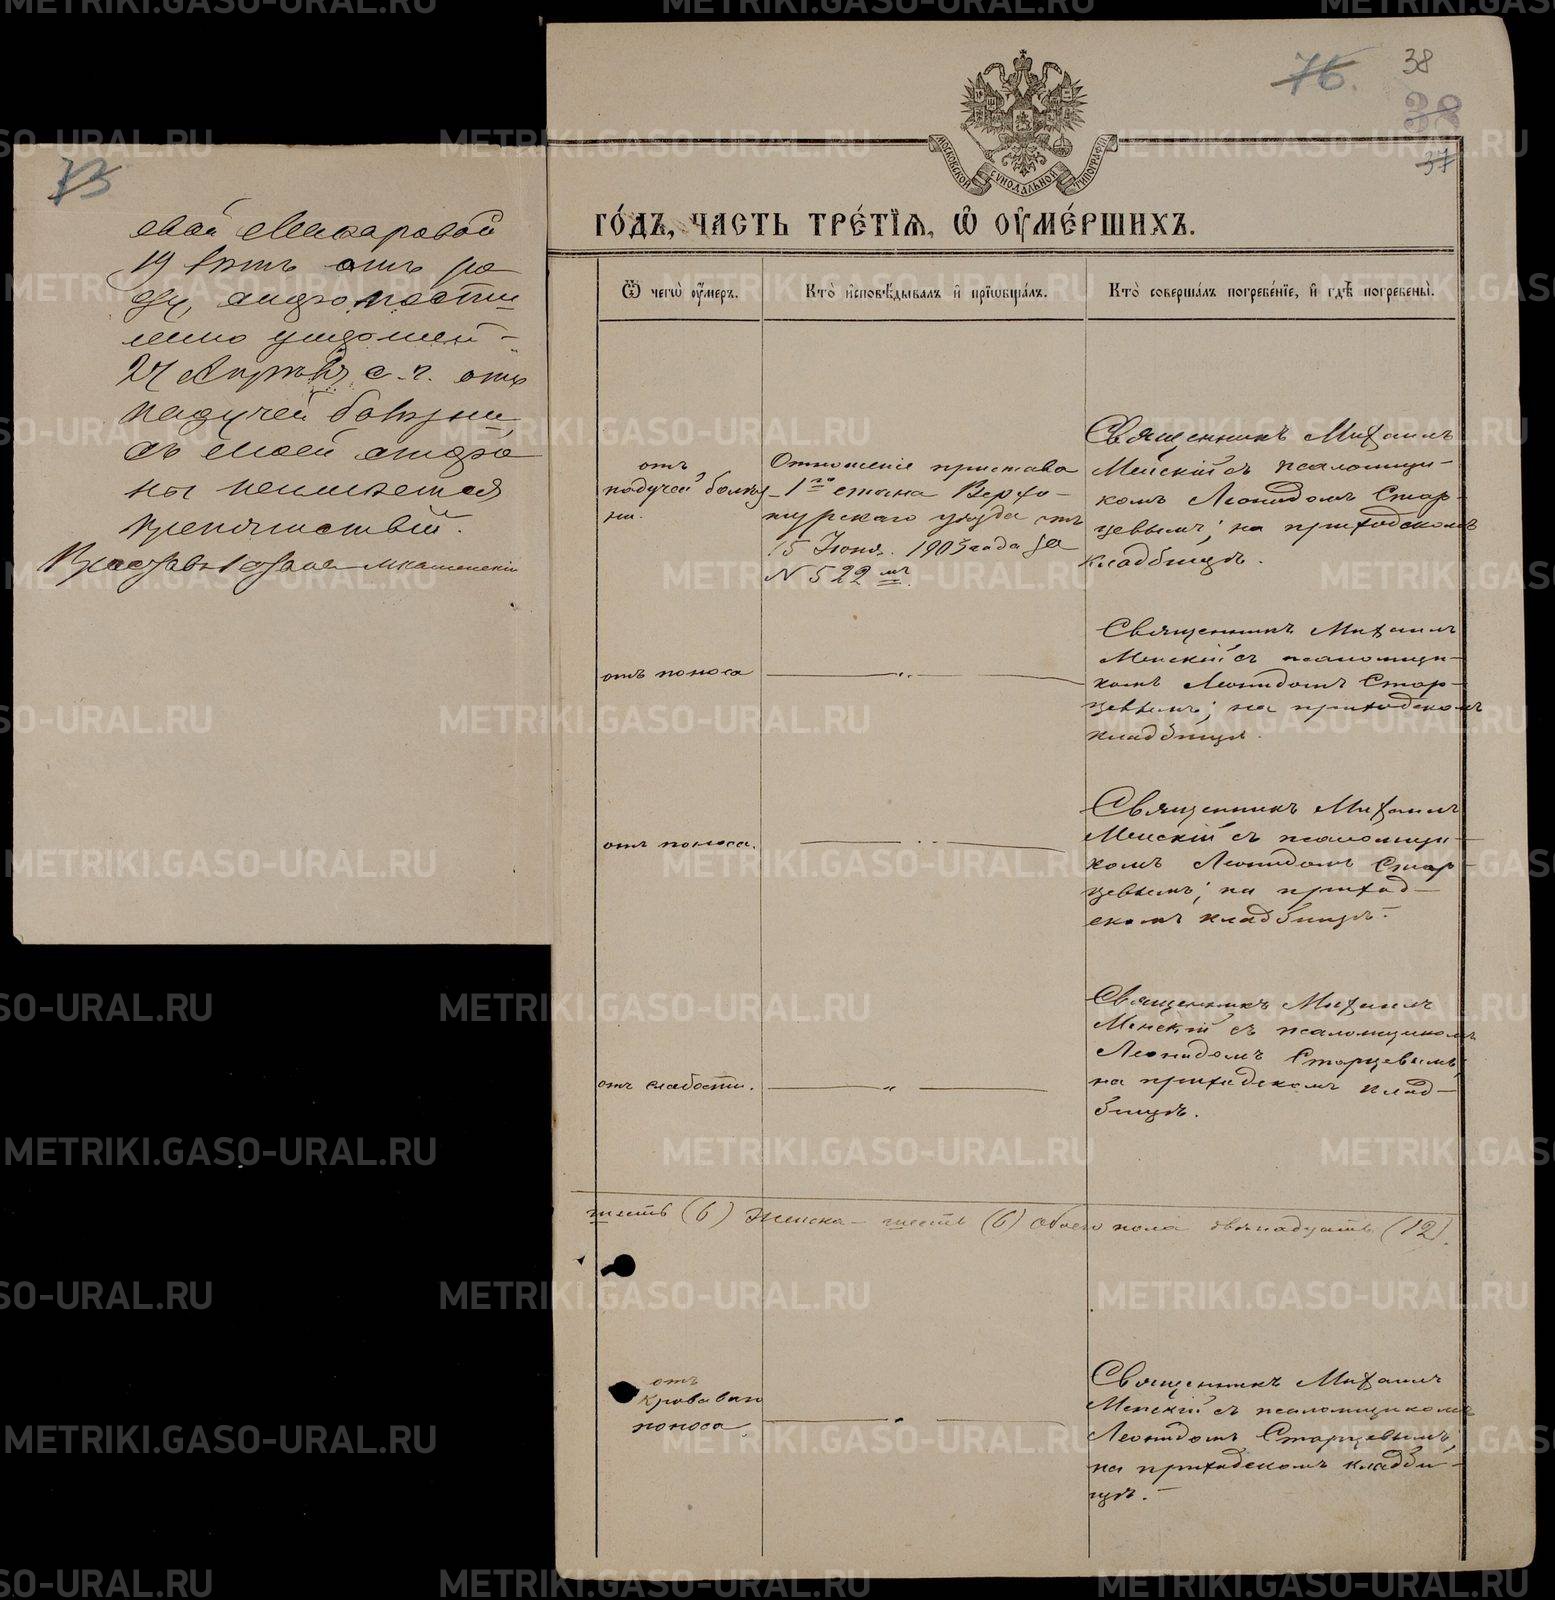 73
евой Макаровой
19 лѣтъ отъ ро
ду, скоропостиж
умершей
27 Апрѣля с. г. отъ
падучей болѣзни
съ моей сторо
ны неимѣется
препятствій.
Приставъ 1 стана
76.
38
38
37
МОСКОВСКОЙ СѴНОДАЛЬНОЙ ТИПОГРАФІИ
ГО́ДЪ, ЧАСТЬ ТРЕ́ТІѦ, Ѡ҆ ОУ҆МЕ́РШИХЪ.
Ѿ чегѡ̀ оу҆́меръ.
Кто̀ и҆сповѣ́дывалъ и҆ прїѡбща́лъ.
Кто̀ соверша́лъ погребе́нїе, и҆ гдѣ̀ погребены̀.
отъ
падучей болѣз
ни.
Отношеніе пристава
1го стана Верхо-
турскаго уѣзда отъ
15 Іюня 1903 года за
N 522 мъ.
Священникъ Михаилъ
Менскій съ псаломщи-
комъ Леонидомъ Стар-
цевымъ; на приходскомъ
кладбищѣ.
отъ поноса
Священникъ Михаилъ
Менскій съ псаломщи-
комъ Леонидомъ Стар-
цевымъ; на приходскомъ
кладбищѣ.
отъ поноса.
Священникъ Михаилъ
Менскій съ псаломщи-
комъ Леонидомъ Стар-
цевымъ; на приход-
скомъ кладбищѣ.
отъ слабости.
Священникъ Михаилъ
Менскій съ псаломщикомъ
Леонидомъ Старцевымъ;
на приходскомъ клад-
бищѣ.
шесть (6) женска - шесть (6) обоего пола двѣнадцать (12).
отъ
кроваваго
поноса.
Священникъ Михаилъ
Менскій съ псаломщикомъ
Леонидомъ Старцевымъ;
на приходскомъ кладби-
щѣ.
METRIKI.GASO-URAL.RU